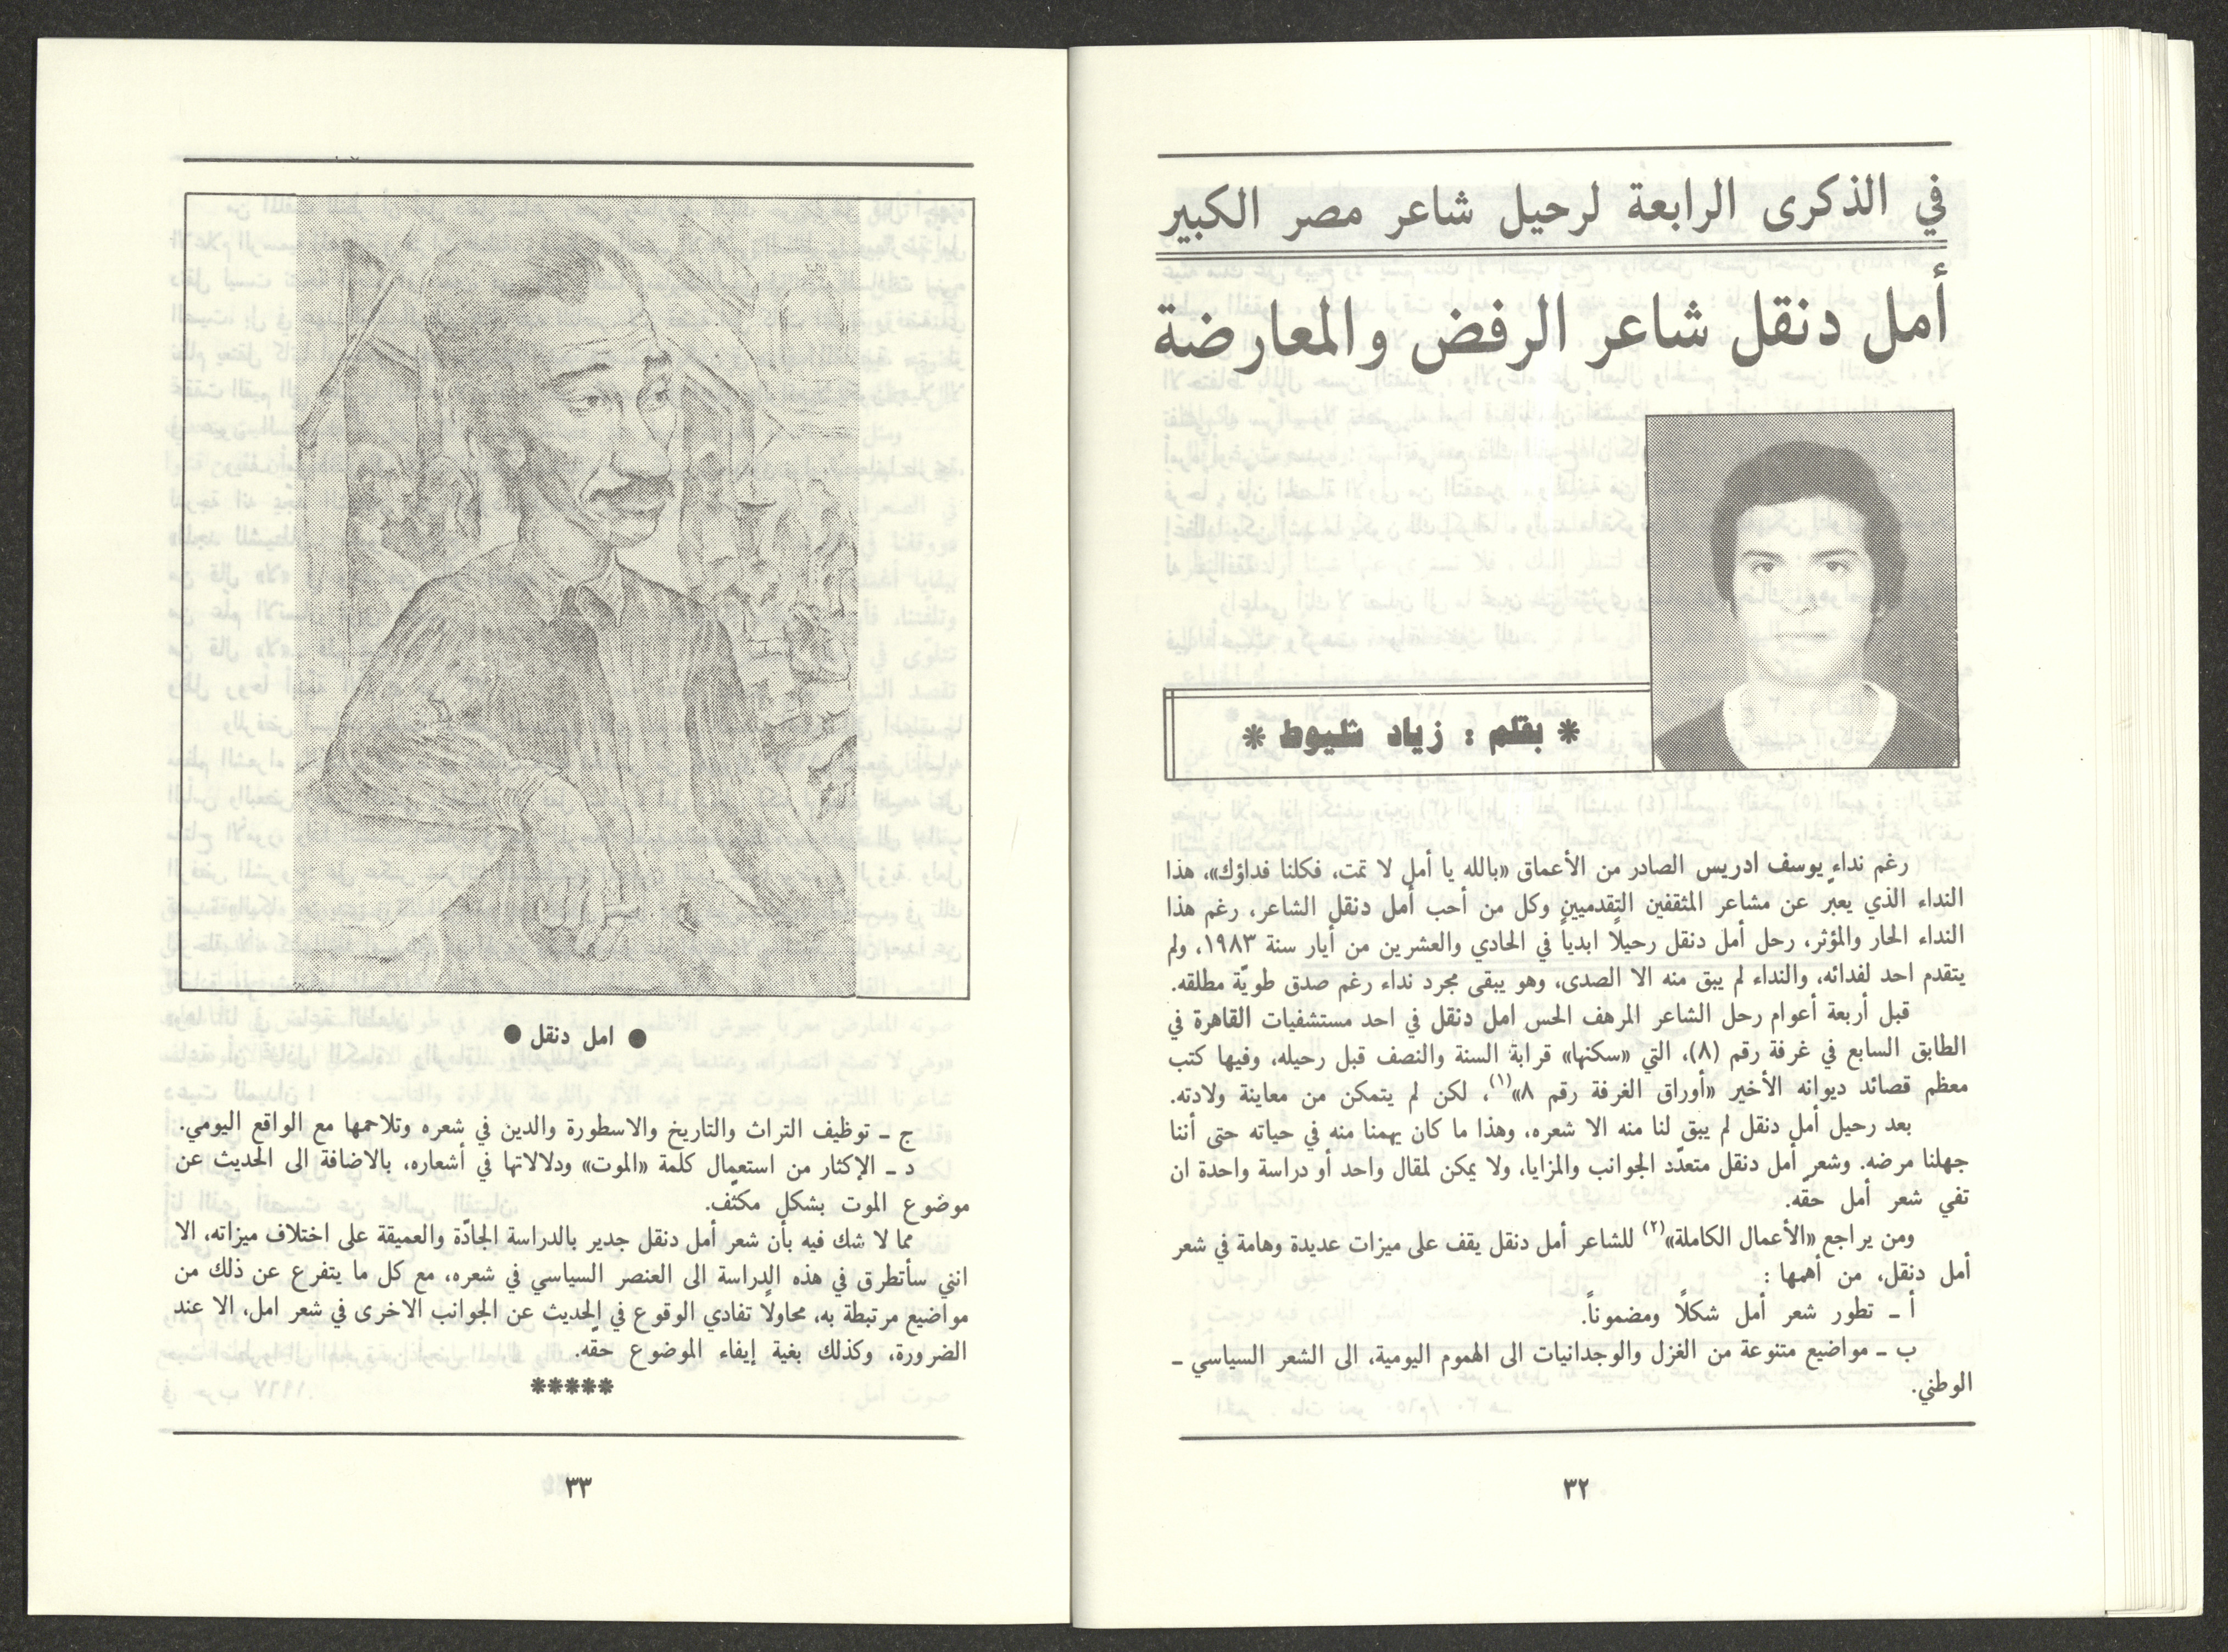 في الذكرى الرابعة لرحيل شاعر مصر الكبير
أمل دنقل شاعر الرفض والمعارضة
* بقلم : زياد شليوط *
رغم نداءٍ يوسف ادريس الصادر من الأعماق «بالله يا أمل لا تمت، فكلنا فداؤك»، هذا
النداء الذي يعبّر عن مشاعر المثقفين التقدميين وكل من أحب أمل دنقل الشاعر، رغم هذا
النداء الحار والمؤثر، رحل أمل دنقل رحيلًا ابدياً في الحادي والعشرين من أيار سنة ١٩٨٣، ولم
يتقدم احد لفدائه، والنداء لم يبق منه الا الصدى، وهو يبقى مجرد نداء رغم صدق طويّة مطلقه.
قبل أربعة أعوام رحل الشاعر المرهف الحس امل دنقل في احد مستشفيات القاهرة في
الطابق السابع في غرفة رقم (٨)، التي «سكنها» قرابة السنة والنصف قبل رحيله، وفيها كتب
معظم قصائد ديوانه الأخير «أوراق الغرفة رقم ٨»(١)، لكن لم يتمكن من معاينة ولادته.
بعد رحيل أمل دنقل لم يبق لنا منه الا شعره، وهذا ما كان يهمنا منه في حياته حتى أننا
جهلنا مرضه. وشعر أمل دنقل متعدّد الجوانب والمزايا، ولا يمكن لمقال واحد أو دراسة واحدة ان
تفي شعر أمل حقّه.
ومن يراجع «الأعمال الكاملة»(٢) للشاعر أمل دنقل يقف على ميزات عديدة وهامة في شعر
أمل دنقل، من أهمها :
أ ـ تطور شعر أمل شكلًا ومضموناً.
ب ـ مواضيع متنوعة من الغزل والوجدانيات الى الهموم اليومية، الى الشعر السياسي ـ
الوطني.
٣٢
● امل دنقل ●
ج ـ توظيف التراث والتاريخ والاسطورة والدين في شعره وتلاحمها مع الواقع اليومي.
د ـ الإكثار من استعمال كلمة «الموت» ودلالاتها في أشعاره، بالاضافة الى الحديث عن
موضوع الموت بشكل مكثّف.
مما لا شك فيه بأن شعر أمل دنقل جدير بالدراسة الجادّة والعميقة على اختلاف ميزاته، الا
انني سأتطرق في هذه الدراسة الى العنصر السياسي في شعره، مع كل ما يتفرع عن ذلك من
مواضيع مرتبطة به، محاولًا تفادي الوقوع في الحديث عن الجوانب الاخرى في شعر امل، الا عند
الضرورة، وكذلك بغية إيفاء الموضوع حقّه.
*****
٣٣